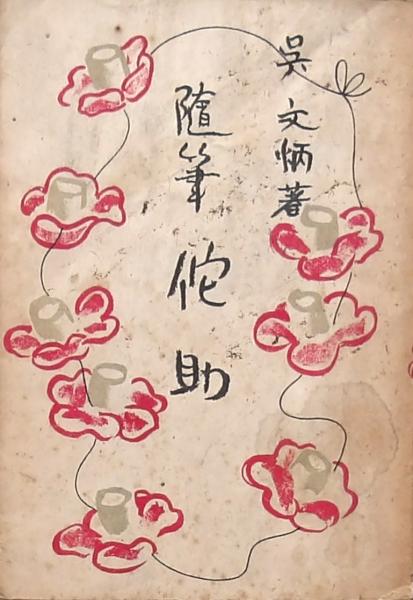 呉 文炳著
随筆 佗助